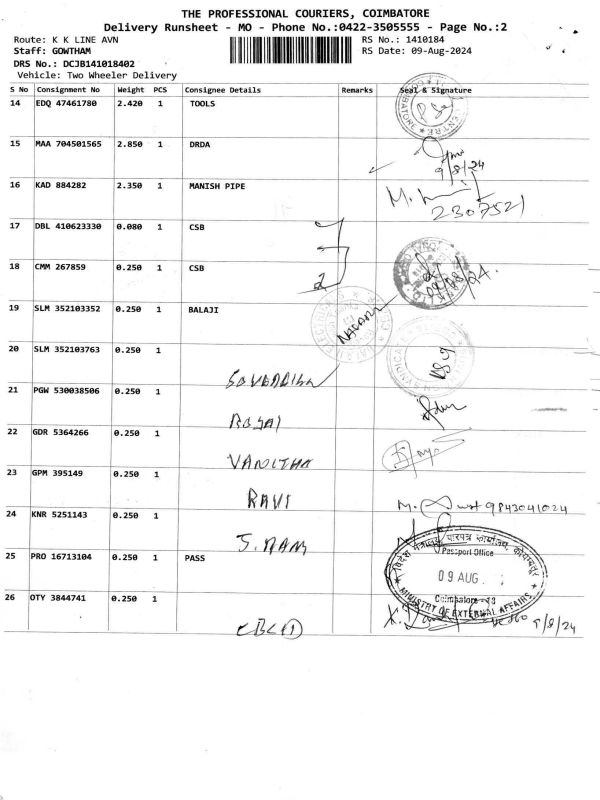 THE PROFESSIONAL COURIERS, COIMBATORE
Delivery Runsheet - MO - Phone No.:0422-3505555 - Page No.:2
Route: K K LINE AVN RS No.: 1410184
Staff: GOWTHAM RS Date: 09-Aug-2024
DRS No.: DCJB141018402
Vehicle: Two Wheeler Delivery
S No Consignment No Weight PCS Consignee Details Remarks Seal & Signature
14 EDQ 47461780 2.420 1 TOOLS
15 MAA 704501565 2.850 1 DRDA
9/8/24
16 KAD 884282 2.350 1 MANISH PIPE
2307521
17 DBL 410623330 0.080 1 CSB
18 CMM 267859 0.250 1 CSB
2
09/08/24.
19 SLM 352103352 0.250 1 BALAJI
20 SLM 352103763 0.250 1
21 PGW 530038506 0.250 1
22 GDR 5364266 0.250 1
VANITHA
23 GPM 395149 0.250 1
RAVI
M. 9843041024
24 KNR 5251143 0.250 1
S. RAM
25 PRO 16713104 0.250 1 PASS
विदेश मंत्रालय, पारपत्र कार्यालय, कोयम्बतूर
Passport Office
09 AUG.
Coimbatore - 18
MINISTRY OF EXTERNAL AFFAIRS
26 OTY 3844741 0.250 1
9/8/24